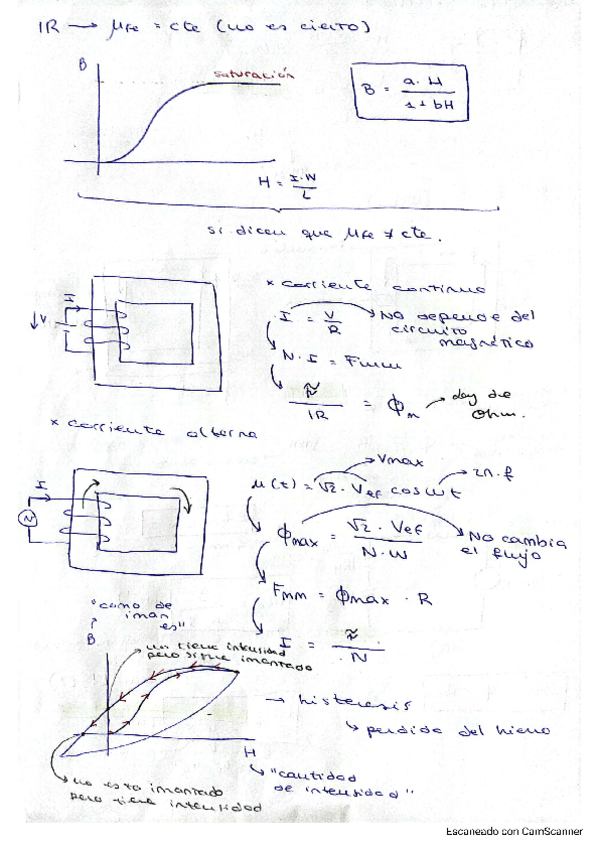 IR → μFe = cte (no es cierto)
B
saturación
B = a·H / 1+bH
H = I·N / L
si dicen que μFe ≠ cte.
* corriente continua
I
V
I = V / R
No depende del
circuito
magnético
N·I = Fmm
≈ / IR = ϕm
ley de
Ohm.
* corriente alterna
I
N
μ(t) = √2 · Vef cos ωt
Vmax
2π·f
ϕmax = √2 · Vef / N·W
No cambia
el flujo
Fmm = ϕmax · R
I = ≈ / N
"como de
iman
es"
B
no tiene intensidad
pero sigue imantado
→ histeresis
↳ perdida del hierro
H
↳ "cantidad
de intensidad"
no esta imantado
pero tiene intensidad
Escaneado con CamScanner